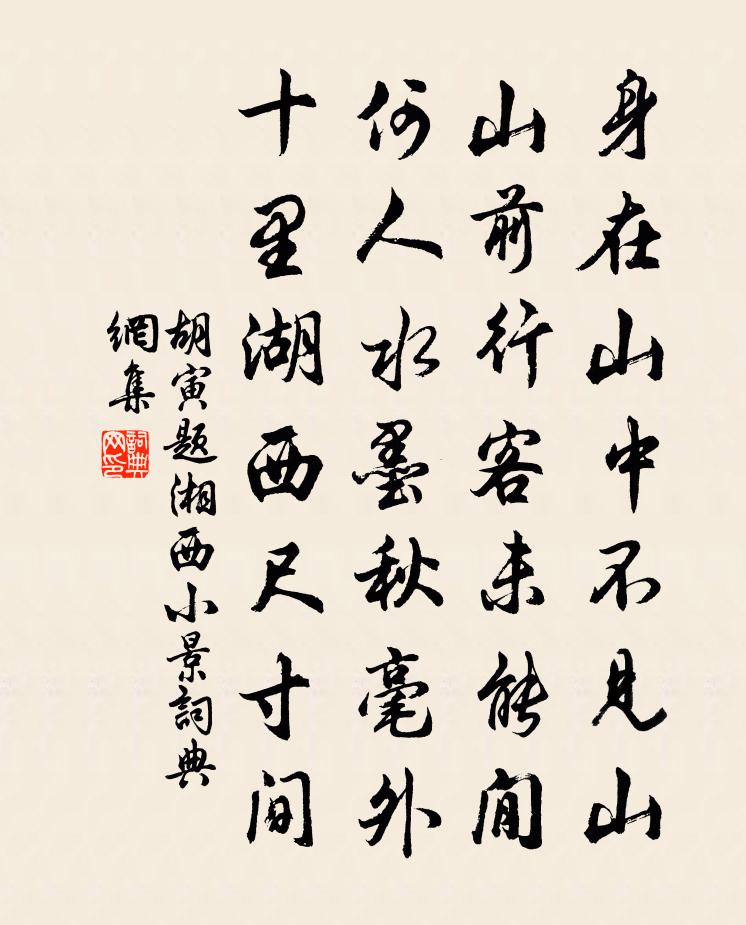 身在山中不見山
山前行客未能閒
何人水墨秋毫外
十里湖西尺寸間
胡寅題湘西小景詞典
網集
詞典網印